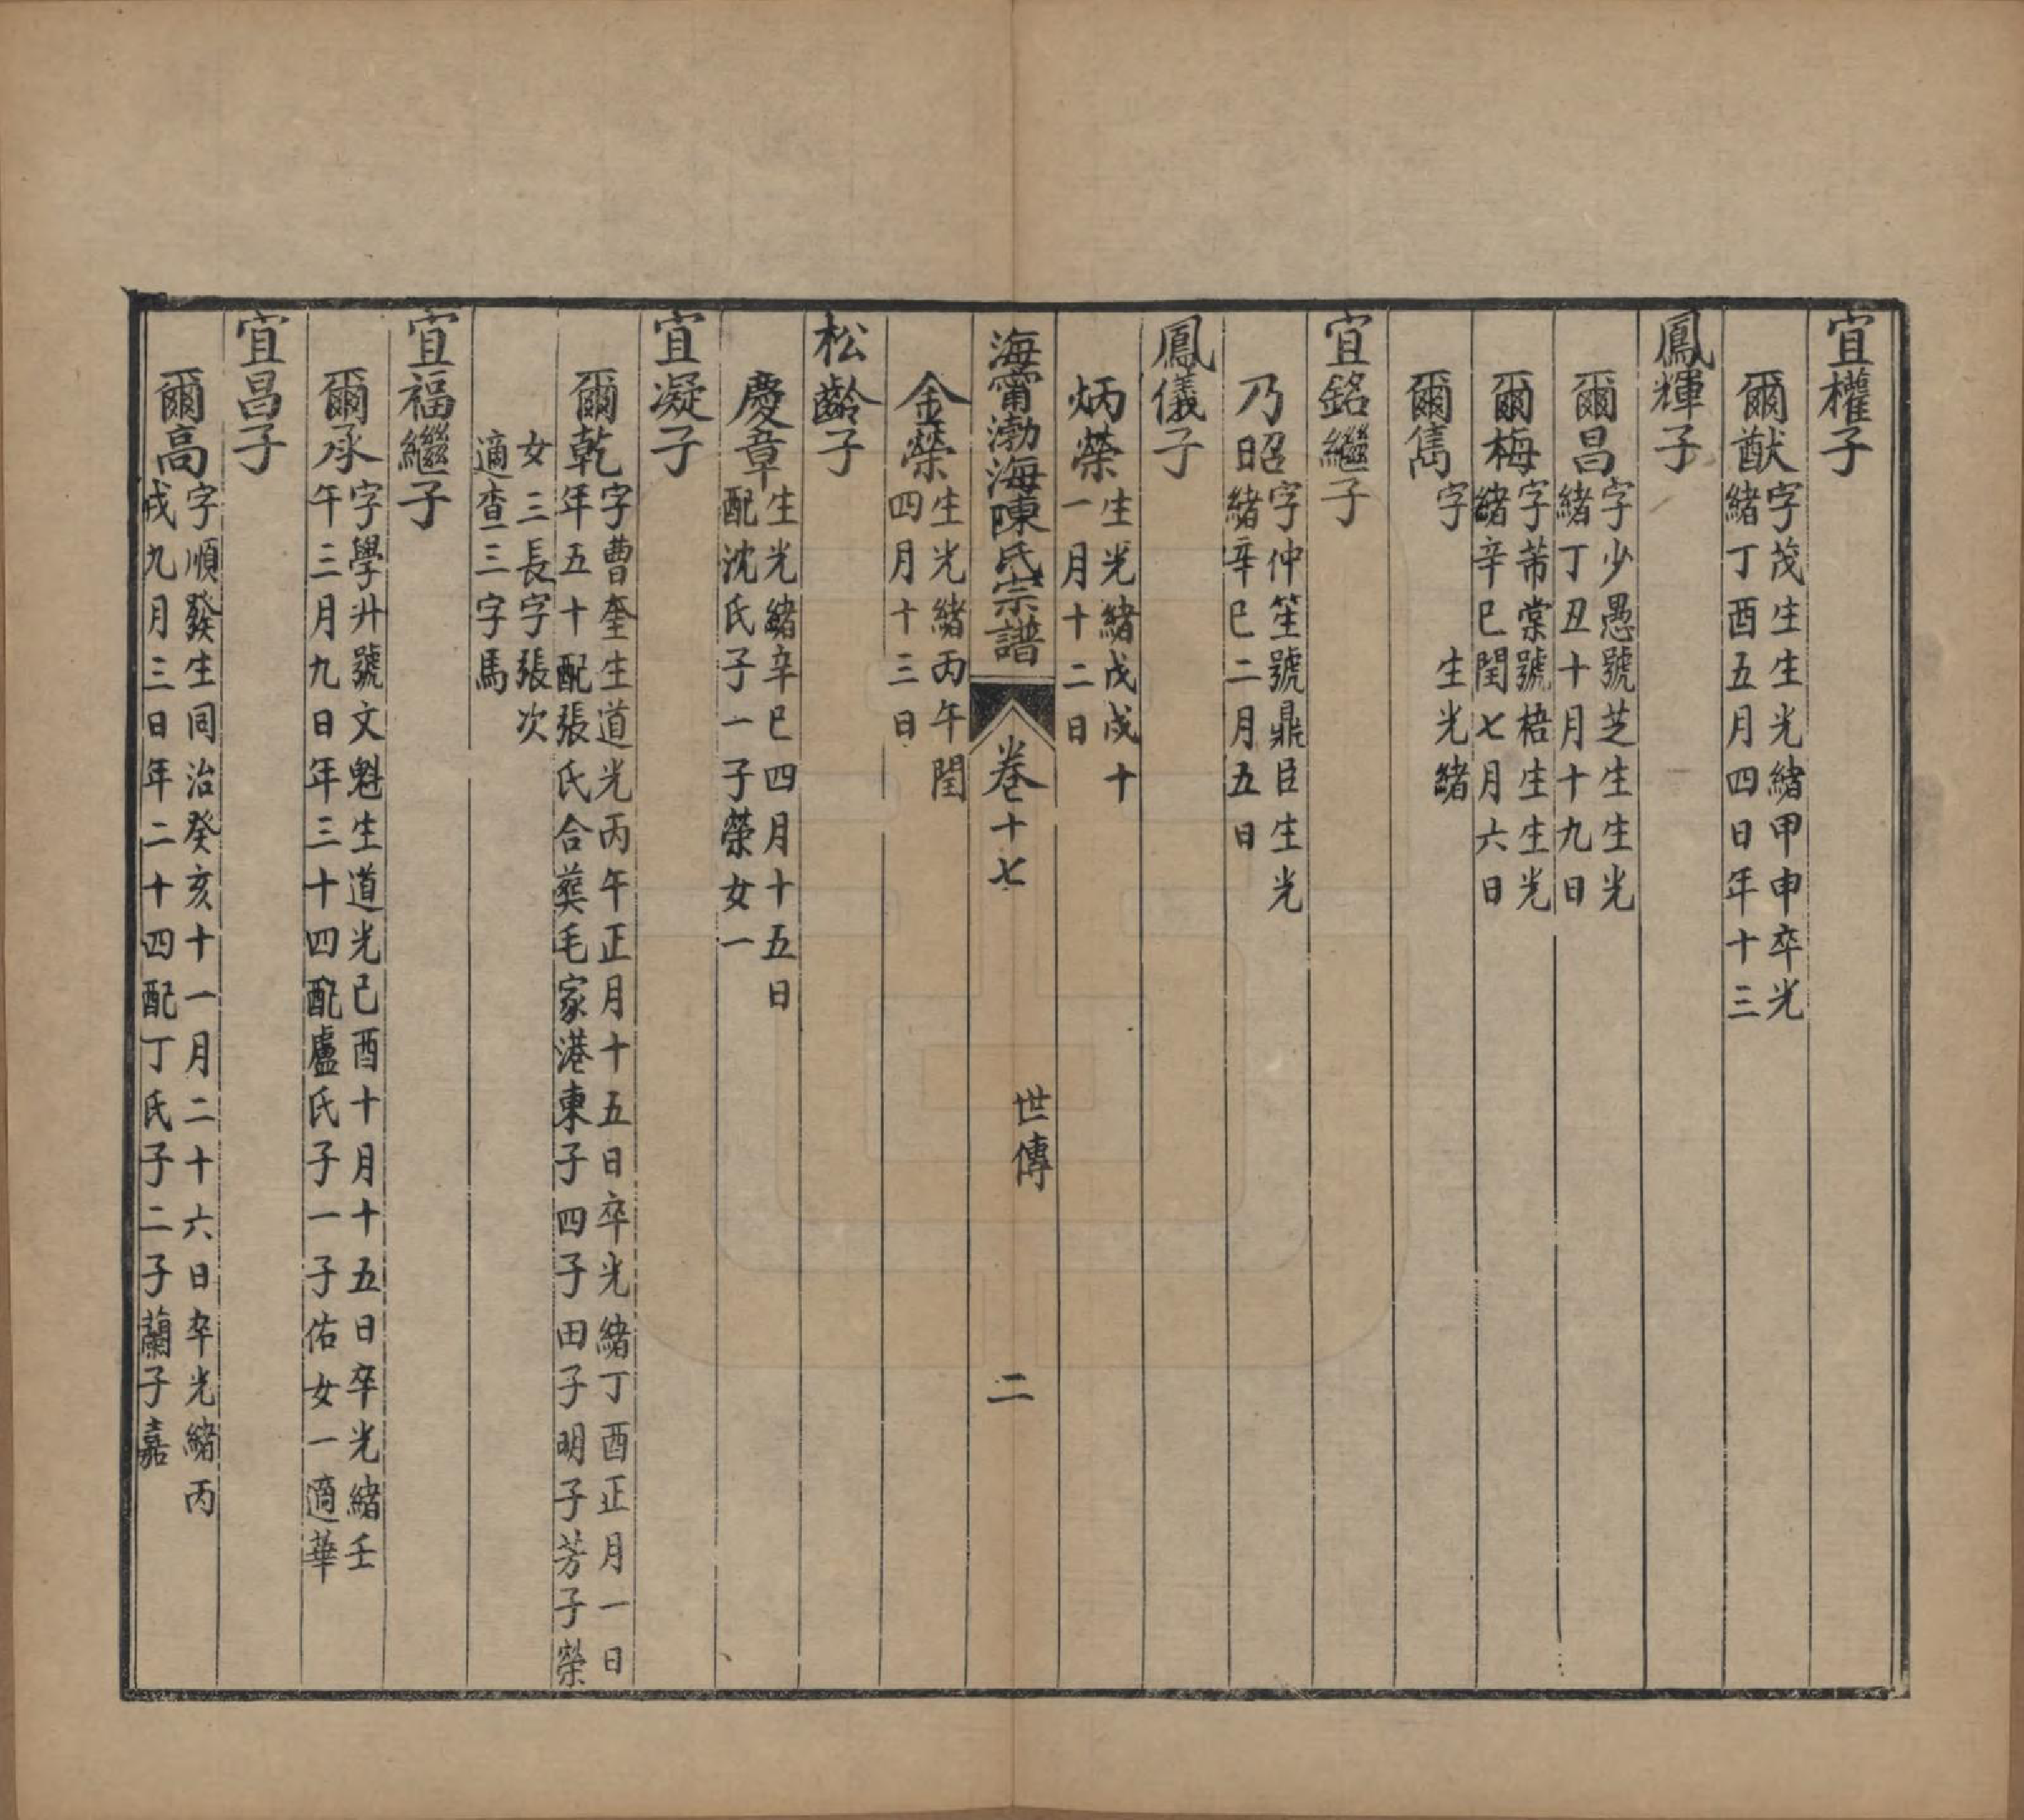 宜權子
爾猷
字茂生生光緒甲申卒光
緒丁酉五月四日年十三
鳳輝子
爾昌
字少愚號芝生生光
緒丁丑十月十九日
爾梅
字芾棠號梧生生光
緒辛巳閏七月六日
爾雋
字　　生光緒
宜銘繼子
乃昭
字仲笙號鼎臣生光
緒辛巳二月五日
鳳儀子
炳榮
生光緒戊戌十
一月十二日
海甯渤海陳氏宗譜 卷十七 世傳 二
金榮
生光緒丙午閏
四月十三日
松齡子
慶章
生光緒辛巳四月十五日
配沈氏子一子榮女一
宜凝子
爾乾
字曹奎生道光丙午正月十五日卒光緒丁酉正月一日
年五十配張氏合葬毛家港東子四子田子明子芳子榮
女三長字張次
適查三字馬
宜福繼子
爾承
字學升號文魁生道光己酉十月十五日卒光緒壬
午三月九日年三十四配盧氏子一子佑女一適華
宜昌子
爾高
字順發生同治癸亥十一月二十六日卒光緒丙
戌九月三日年二十四配丁氏子二子蘭子嘉